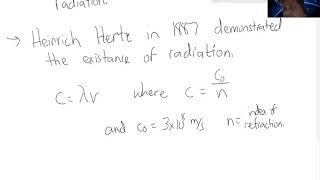 radiation.
→ Heinrich Hertz in 1887 demonstrated
the existance of radiation.
c = λν where c = c₀/n
and c₀ = 3×10⁸ m/s n = index of refraction.